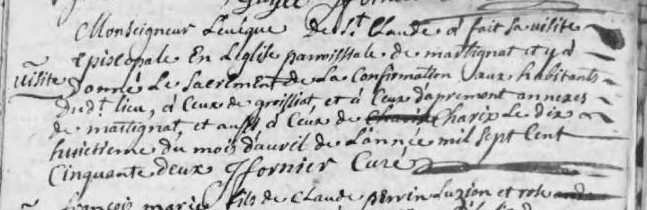 Monseigneur Leveque De St Claude a fait sa visite
Episcopale En Leglise parroissiale de martignat et y a
visite
Donné Le Sacrement de La Confirmation aux habitants
Dud.t lieu, a Ceux de groissiat, et a Ceux d'apremont annexes
de martignat, et aussi a Ceux de Charix Charix Le dix
huictieme du mois d'avril de L'année mil sept Cent
Cinquante deux Jfornier Curé
françois marie fils de Claude perrin Luzion et